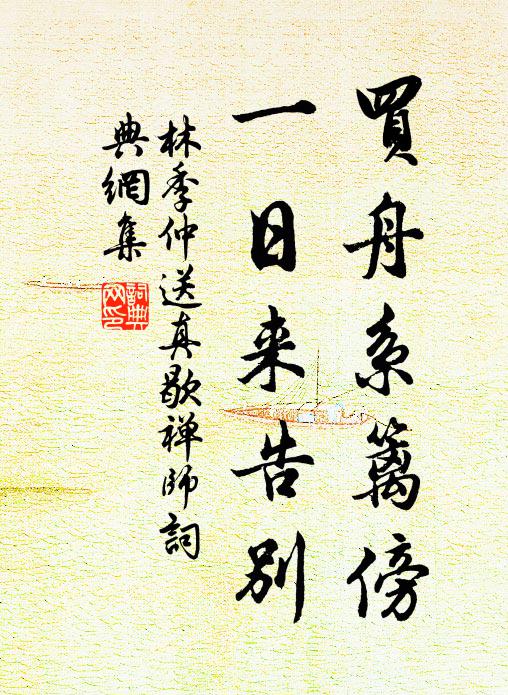 買舟系篱傍
一日来告别
林季仲送真歇禅师詞
典網集
詞典网印